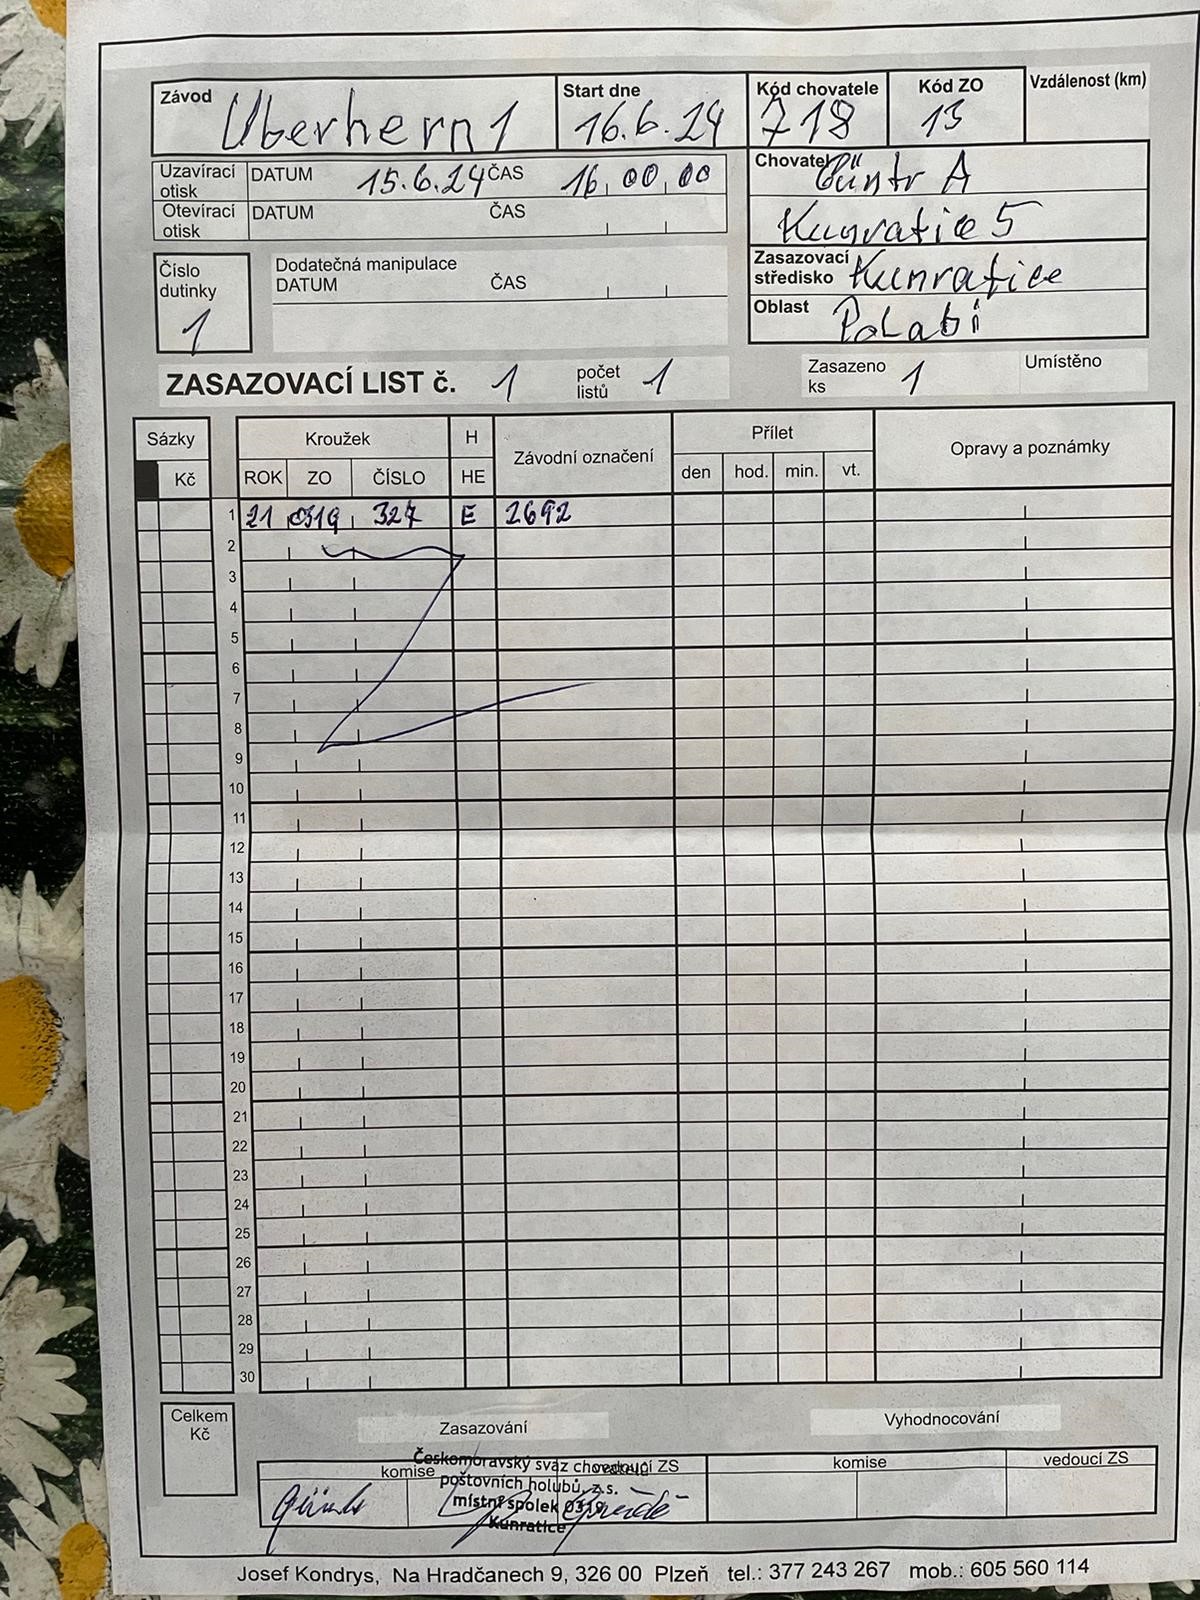 Závod Überhern 1 Start dne 16.6.24 Kód chovatele 718 Kód ZO 13 Vzdálenost (km)
Uzavírací otisk DATUM 15.6.24 ČAS 16 00 00
Otevírací otisk DATUM ČAS
Chovatel Güntr A
Kunratice 5
Zasazovací středisko Kunratice
Oblast Polabí
Číslo dutinky 1
Dodatečná manipulace
DATUM ČAS
ZASAZOVACÍ LIST č. 1 počet listů 1 Zasazeno ks 1 Umístěno
Sázky Kroužek H Závodní označení Přílet Opravy a poznámky
Kč ROK ZO ČÍSLO HE den hod. min. vt.
1 21 0319 327 E 2692
2
3
4
5
6
7
8
9
10
11
12
13
14
15
16
17
18
19
20
21
22
23
24
25
26
27
28
29
30
Celkem Kč
Zasazování Vyhodnocování
komise vedoucí ZS komise vedoucí ZS
Českomoravský svaz chovatelů
poštovních holubů, z.s.
místní spolek 0319
Kunratice
Josef Kondrys, Na Hradčanech 9, 326 00 Plzeň tel.: 377 243 267 mob.: 605 560 114